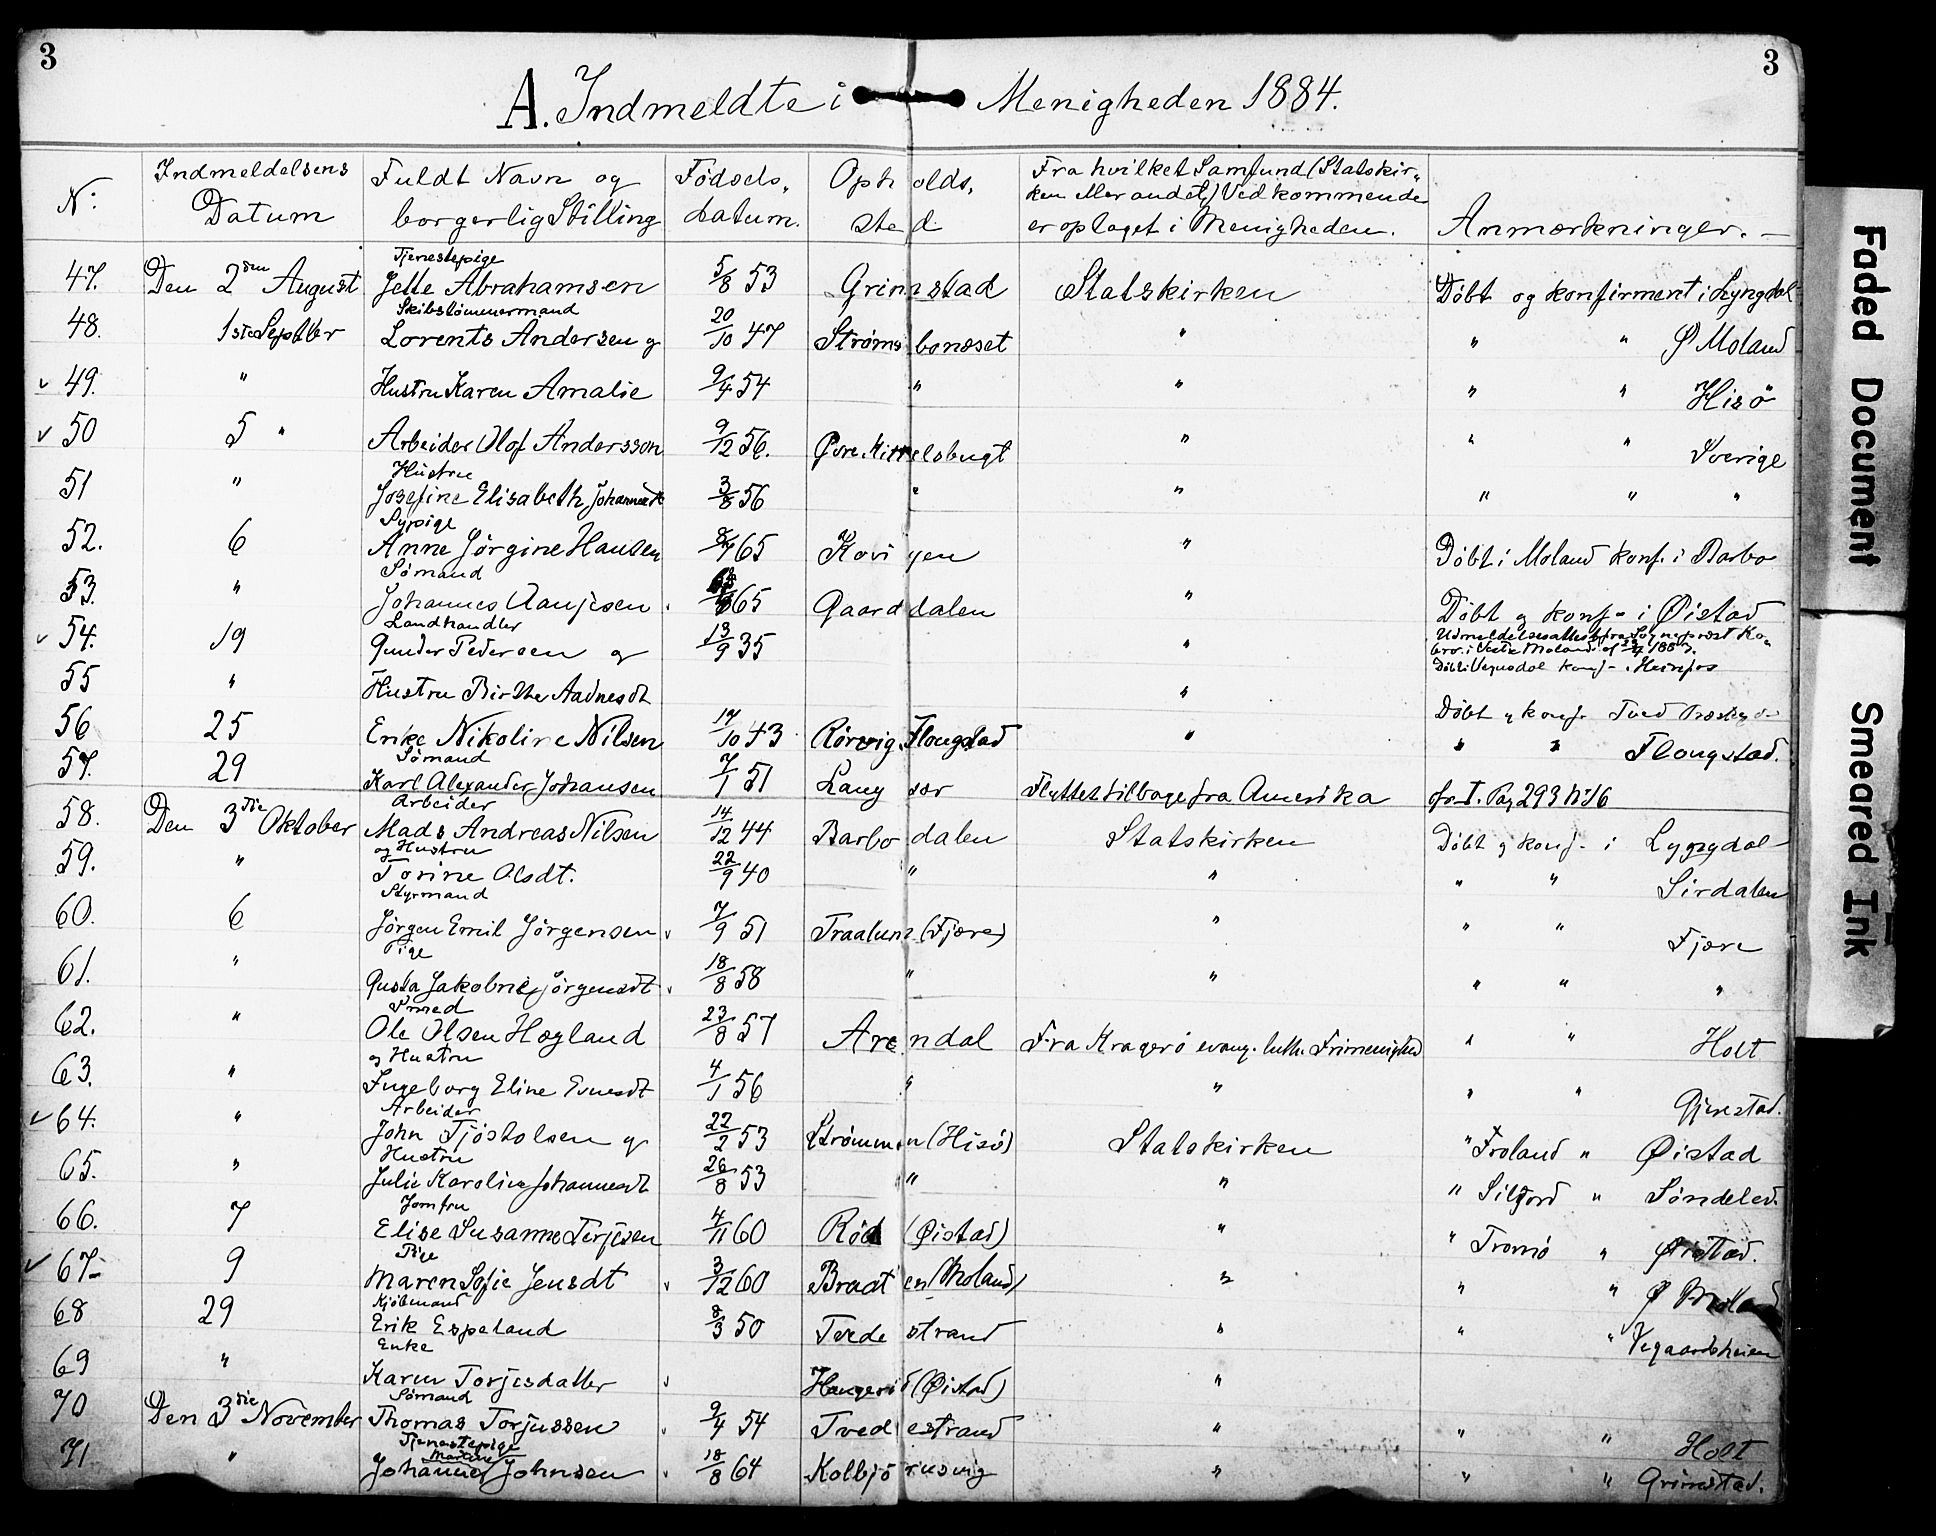 3 3
A. Indmeldte i Menigheden 1884.
No: Indmeldelsens Datum Fuldt Navn og borgerlig Stilling Fødsels, datum. Opholds, sted Fra hvilket Samfund (Statskirken eller andet) Vedkommende er optaget i Menigheden. Anmærkninger. —
Tjenestepige
47. Den 2den August Jette Abrahamsen 5/8 53 Grimstad Statskirken Döbt og konfirment i Lyngdal
Skibstømmermand
48. 1ste Septbr Lorents Andersen og 20/10 47 Strømsbonæset " " " Ø Moland
v 49. " Hustru Karen Amalie 9/4 54 " " " " Hisö
v 50 5 " Arbeider Olof Andersson 9/12 56. Øvre " " " Sverige
Hustru
51 " Josefine Elisabeth 3/8 56 " " " " "
Sypige
52. 6 Anne Jörgine Hansen 8/7 65 " Döbt i Moland konf. i Barbo
Sømand
53. " Johannes Aanjesen 65 Gaarddalen " Döbt og konf- i Øistad
Landhandler
v 54. 19 Gunder Pedersen og 13/9 35 " Udmeldelsesattest fra Sogneprest
55 " Hustru Birthe Aadnesdt "
Döbt og konf. Tved
56 25 Nikoline Nilsen 17/10 43 Rörvig, Flougstad " " " Flougstad.
Sömand
57. 29 Karl Alexander Johansen 7/1 51 Lang sær Flyttet tilbage fra Amerika fr. I. Pag 293 No 16
Arbeider
58. Den 3die Oktober Mads Andreas Nilsen 14/12 44 Barbodalen Statskirken Döbt og konf- i Lyngdal
og Hustru
59. " Torine Olsdt. 22/9 40 " " " " Sirdalen
Styrmand
60. 6 Jörgen Emil Jörgensen v 7/9 51 Traalum (Fjære) " " " Fjære
Pige
61. " Gusta Jakobine Jörgensdt v 18/8 58 " " " " "
Smed
62. " Ole Olsen Hægland 23/8 57 Arendal Fra Kragerö evang. luth. Frimenighed " " Holt
og Hustru
63. " Ingeborg Eline 4/1 56 " " " " Gjerestad.
Arbeider
v 64. " John Tjöstolsen og 22/2 53 Strømmen (Hisö) Statskirken " Froland " Øistad
Hustru
65. " Julie Karoline Johannesdt 26/8 53 " " " Siljord " Söndeled.
Jomfru
66. 7 Elise Susanne Terjesen 4/11 60 Röd (Øistad) " " Tromö " Øistad.
Pige
v 67- 9 Maren Sofie Jensdt v 3/12 60 Bradten (Moland) " " " Ø Moland
Kjöbmand
68 29 Erik Espeland 8/3 50 Tvedestrand " " " Vegaardsheien
Enke
69 " Karen Torjesdatter v (Øistad) "
Sömand
70 Den 3die November Thomas Torjussen v 9/4 54 Tvedestrand " " " Holt
Tjenestepige
Martine
71. " Johanne Johnsen v 18/8 64 Kolbjörnsvig " " " Grimstad.
Faded Document
Smeared Ink